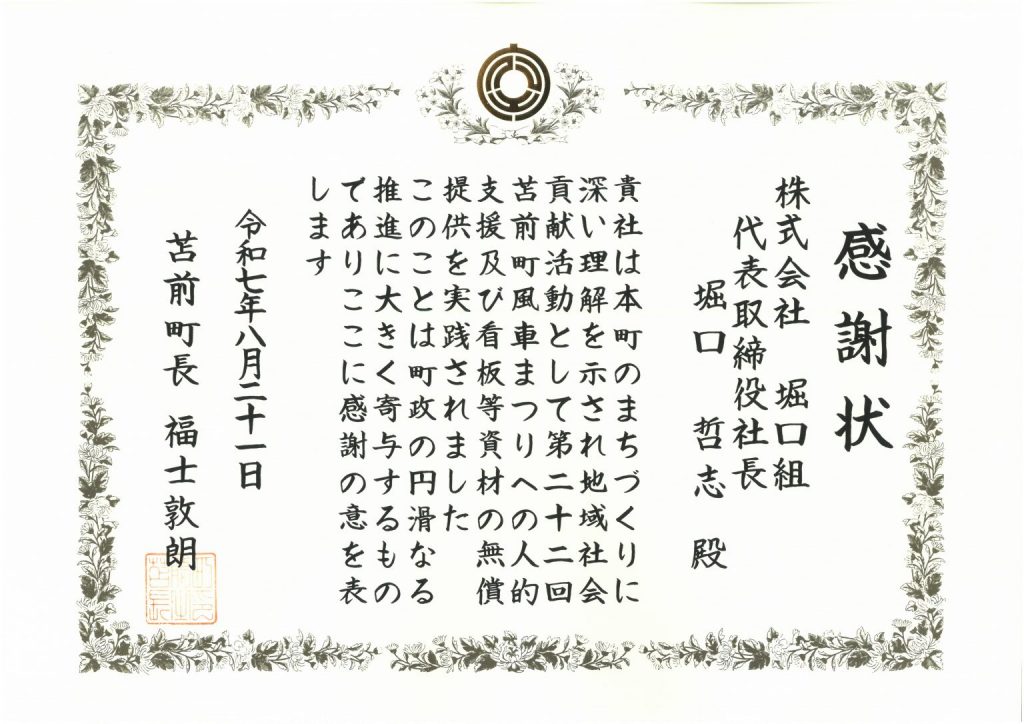 感謝状
株式会社 堀口組
代表取締役社長
堀口 哲志 殿
貴社は本町のまちづくりに
深い理解を示され地域社会
貢献活動として第二十二回
苫前町風車まつりへの人的
支援及び看板等資材の無償
提供を実践されました
このことは町政の円滑なる
推進に大きく寄与するもの
でありここに感謝の意を表
します
令和七年八月二十一日
苫前町長 福士敦朗